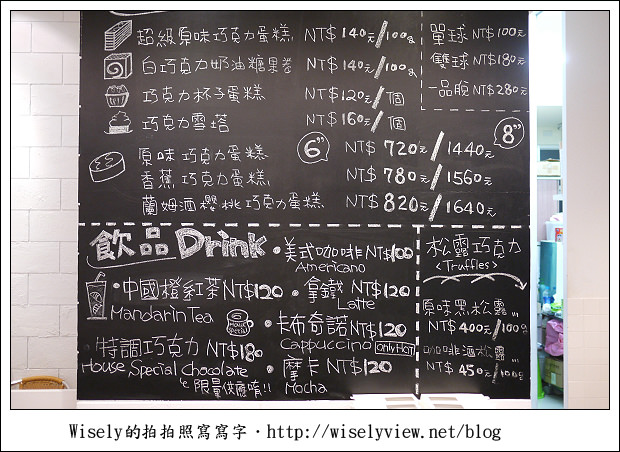 超級原味巧克力蛋糕 NT$140元/100g
白巧克力奶油糖果卷 NT$140元/100g
巧克力杯子蛋糕 NT$120元/個
巧克力雪塔 NT$160元/個
6" 8"
原味巧克力蛋糕 NT$720元/1440元
香蕉巧克力蛋糕 NT$780/1560元
蘭姆酒櫻桃巧克力蛋糕 NT$820/1640元
單球NT$100元
雙球NT$180元
一品脫NT$280元
飲品Drink
·中國橙紅茶NT$120
Mandarin Tea
House Special
特調巧克力NT$180
House Special Chocolate
限量供應唷!!
·美式咖啡NT$100
Americano
·拿鐵NT$120
Latte
·卡布奇諾NT$120
Cappuccino only Hot
·摩卡NT$120
Mocha
松露巧克力
<Truffles>
原味黑松露
NT$400元/100g
咖啡酒松露
NT$450元/100g
Wisely的拍拍照寫寫字·http://wiselyview.net/blog